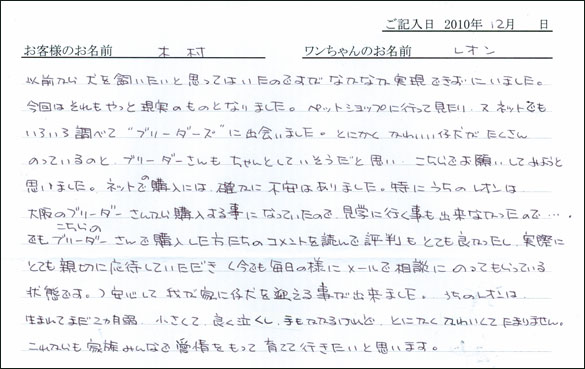 ご記入日 2010年 12月 日
お客様のお名前 木村 ワンちゃんのお名前 レオン
以前から犬を飼いたいと思ってはいたのですがなかなか実現できずにいました。
今回はそれもやっと現実のものとなりました。ペットショップに行って見たり、又ネットでも
いろいろ調べて“ブリーダーズ”に出会いました。とにかくかわいい仔犬がたくさん
のっているのと、ブリーダーさんもちゃんとしていそうだと思い、こちらでお願いしてみようと
思いました。ネットでの購入には、確かに不安はありました。特にうちのレオンは
大阪のブリーダーさんから購入する事になっていたので、見学に行く事も出来なかったので…。
でもこちらのブリーダーさんで購入した方たちのコメントを読んで評判もとても良かったし、実際に
とても親切に応待していただき(今でも毎日の様にメールで相談にのってもらっている
状態です。)安心して我が家に仔犬を迎える事が出来ました。うちのレオンは
生まれてまだ2ヵ月弱、小さくて、良く泣くし、手もかかるけれど、とにかくかわいくてたまりません。
これからも家族みんなで愛情をもって育てて行きたいと思います。